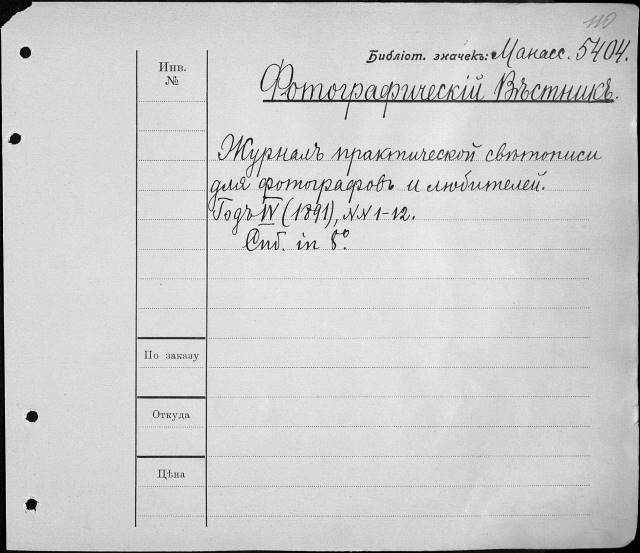 Библіот. значекъ: Манасс. 5404.
Инв.
№
Фотографическій Вѣстникъ.
Журналъ практической свѣтописи
для фотографовъ и любителей.
Годъ IV (1891), NN 1-12.
Спб. in 8º.
По заказу
Откуда
Цѣна